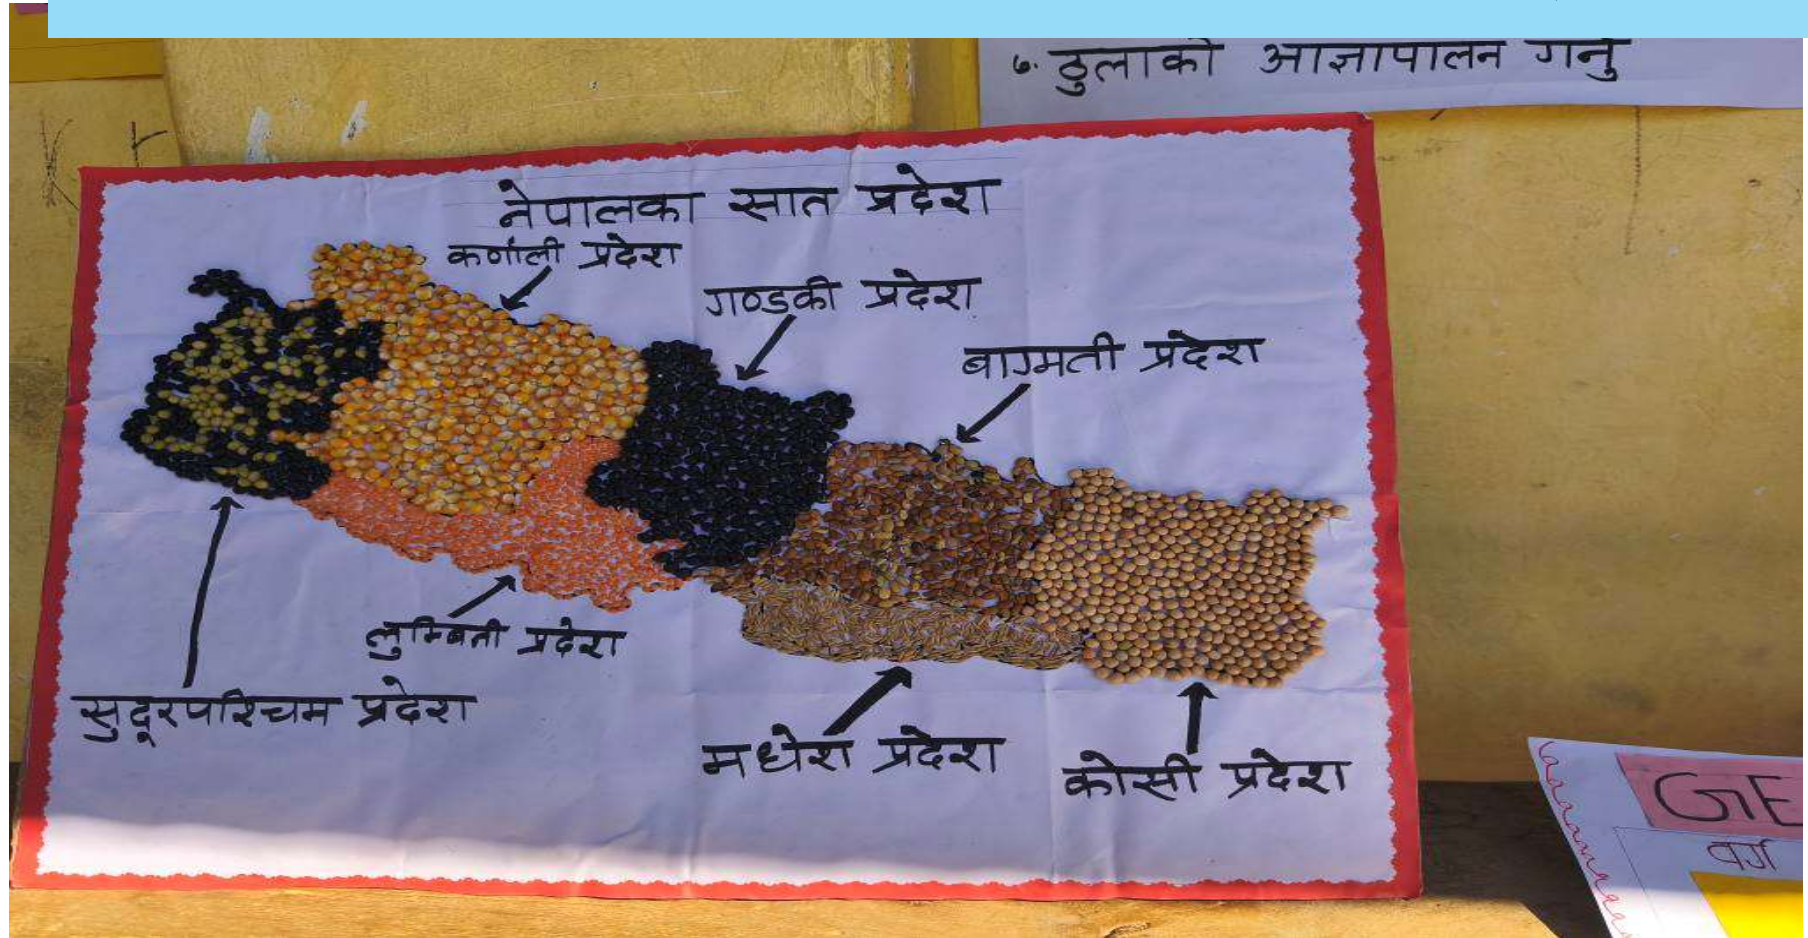 ७. ठुलाको आज्ञापालन गर्नु
नेपालका सात प्रदेश
कर्णाली प्रदेश
गण्डकी प्रदेश
बागमती प्रदेश
लुम्बिनी प्रदेश
सुदूरपश्चिम प्रदेश
मधेश प्रदेश
कोसी प्रदेश
GE
वर्ग